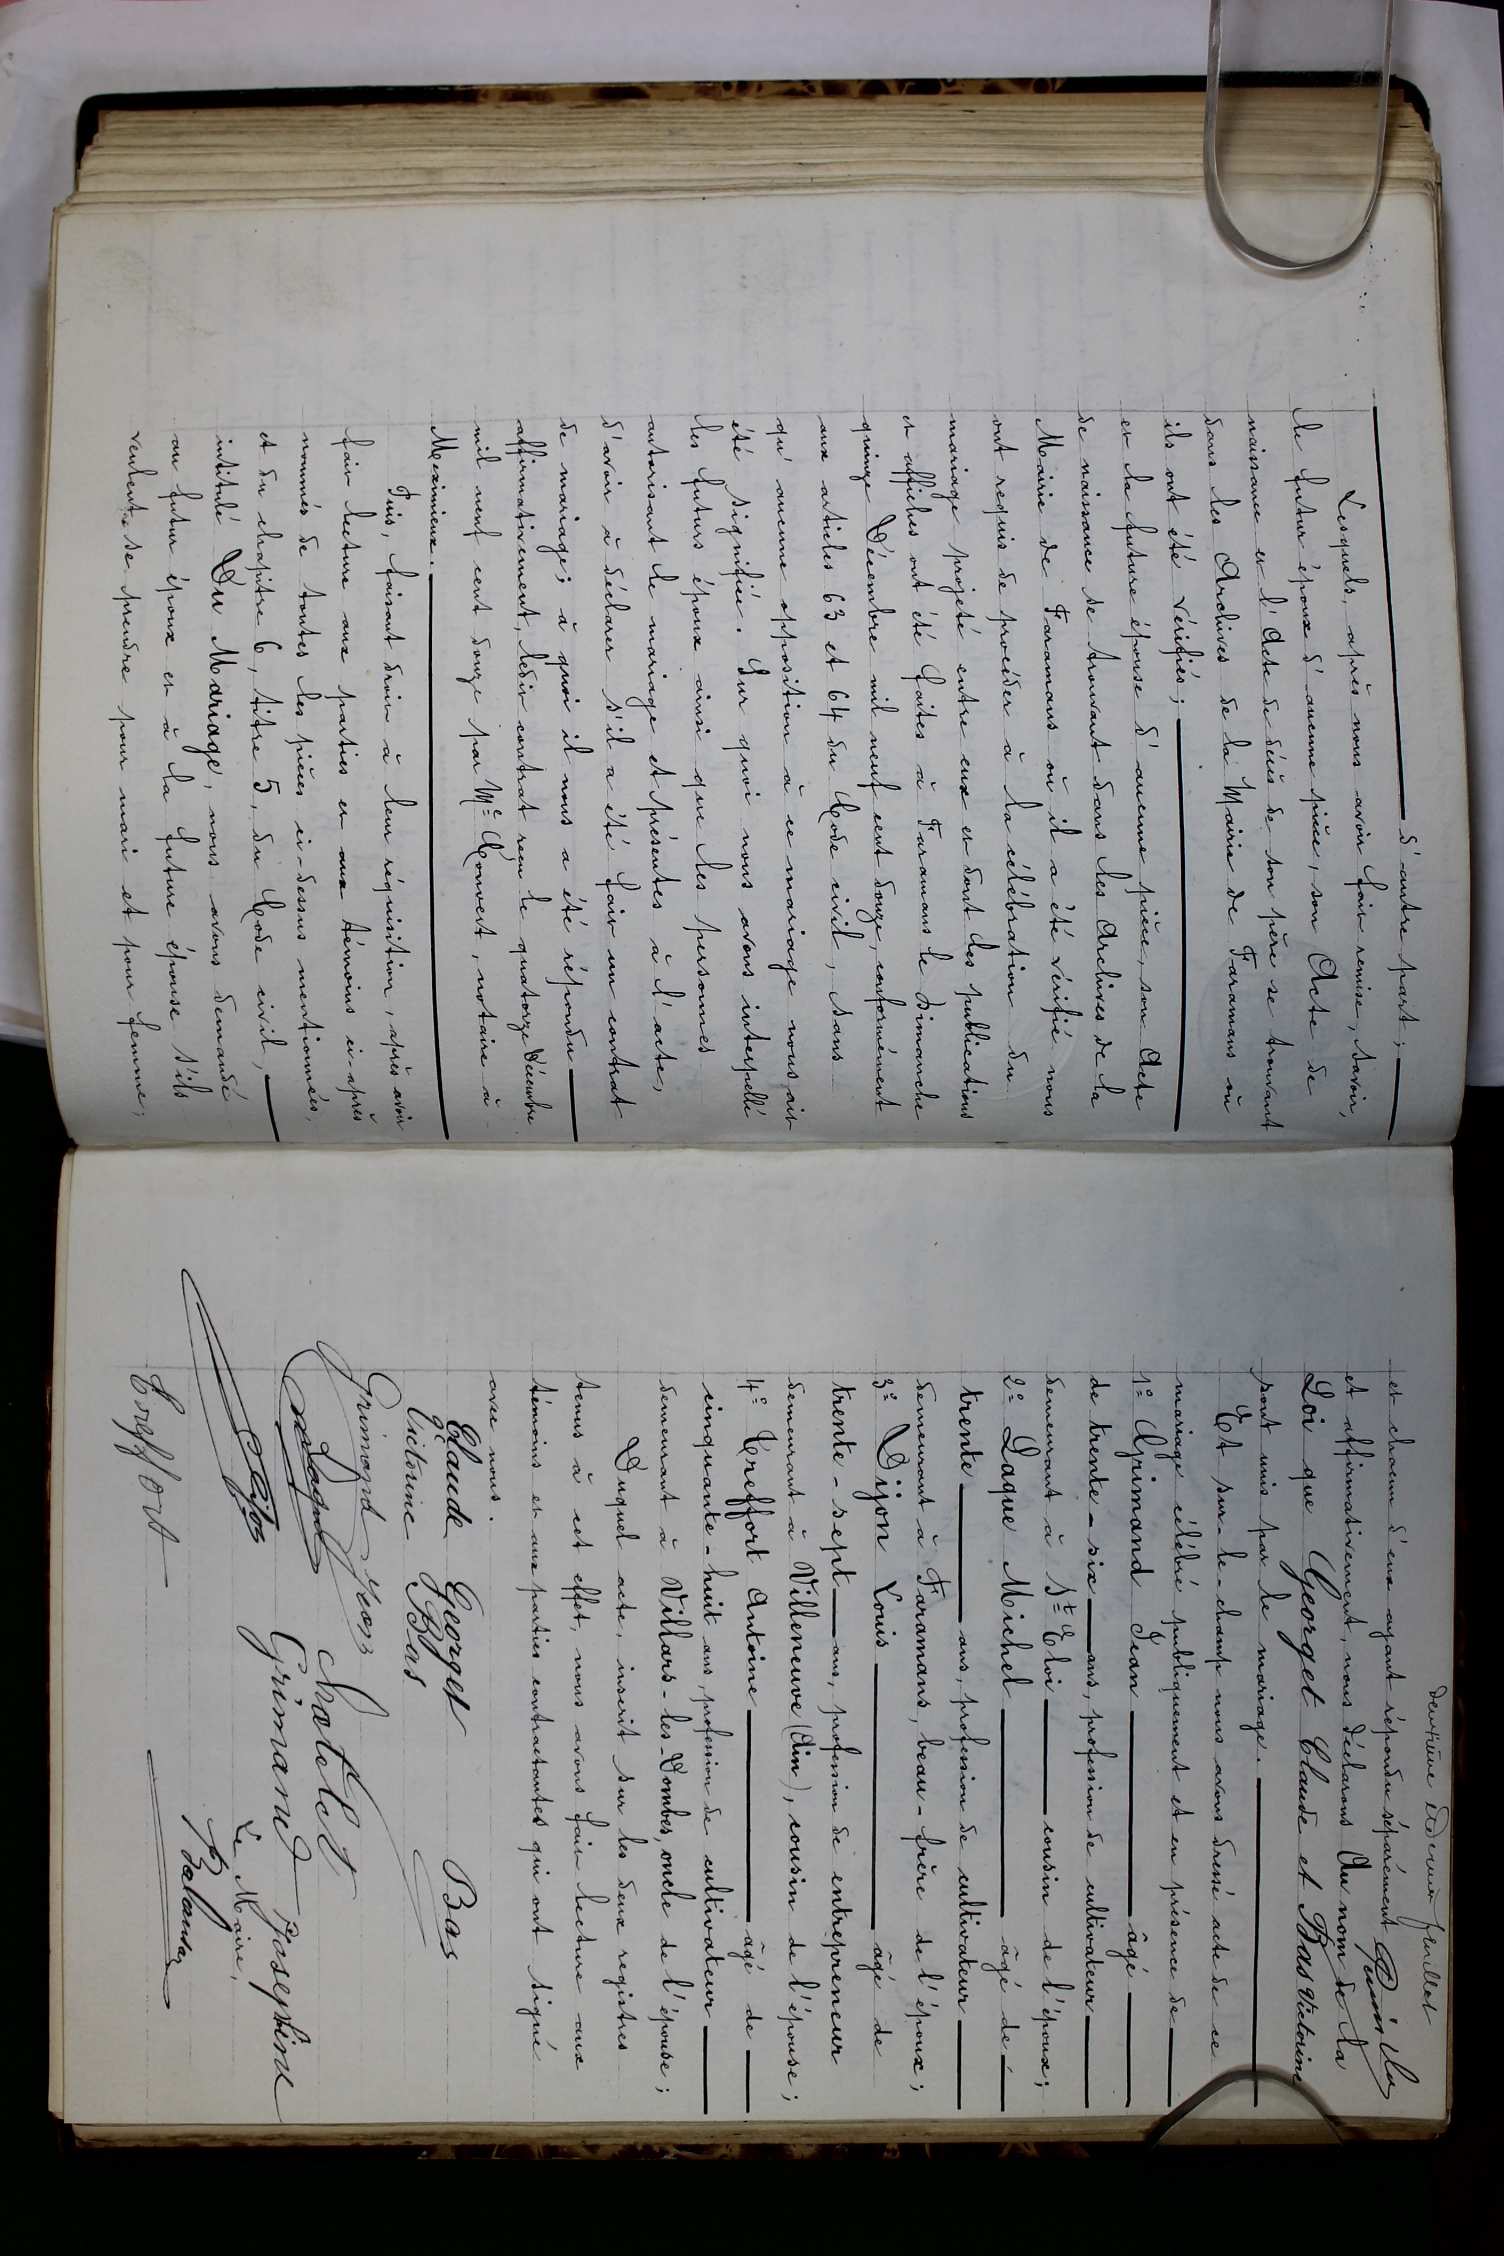 d'autre part ;
Lesquels, après nous avoir fait remise, savoir,
le futur époux d'aucune pièce, son Acte de
naissance et l'Acte de décès de son père se trouvant
dans les Archives de la Mairie de Faramans où
ils ont été vérifiés ;
et la future épouse d'aucune pièce, son Acte
de naissance se trouvant dans les Archives de la
Mairie de Faramans où il a été vérifié nous
ont requis de procéder à la célébration du
mariage projeté entre eux et dont les publications
et affiches ont été faites à Faramans le Dimanche
quinze Décembre mil neuf cent douze, conformément
aux articles 63 et 64 du Code civil, sans
qu'aucune opposition à ce mariage nous ait
été signifiée. Sur quoi nous avons interpellé
les futurs époux ainsi que les personnes
autorisant le mariage et présentes à l'acte,
d'avoir à déclarer s'il a été fait un contrat
de mariage ; à quoi il nous a été répondu
affirmativement, ledit contrat reçu le quatorze Décembre
mil neuf cent douze par Me Convert, notaire à
Meximieux.
Puis, faisant droit à leur réquisition, après avoir
fait lecture aux parties et aux témoins ci-après
nommés de toutes les pièces ci-dessus mentionnées,
et du chapitre 6, titre 5, du Code civil,
intitulé Du Mariage, nous avons demandé
au futur époux et à la future épouse s'ils
veulent se prendre pour mari et pour femme ;
deuxième et dernier feuillet
et chacun d'eux ayant répondu séparément
et affirmativement, nous déclarons Au nom de la
Loi que Georget Claude et Bas Victorine
sont unis par le mariage.
Et sur-le-champ nous avons dressé acte de ce
mariage célébré publiquement et en présence de
1° Grimand Jean âgé
de trente-six ans, profession de cultivateur
demeurant à St Eloi cousin de l'époux ;
2° Laque Michel âgé de
trente ans, profession de cultivateur
demeurant à Faramans, beau-frère de l'époux ;
3° Dijon Louis âgé de
trente-sept ans, profession de entrepreneur
demeurant à Villeneuve (Ain), cousin de l'épouse ;
4° Treffort Antoine âgé de
cinquante-huit ans, profession de cultivateur
demeurant à Villars-les-Dombes, oncle de l'épouse ;
Duquel acte, inscrit sur les deux registres
tenus à cet effet, nous avons fait lecture aux
témoins et aux parties contractantes qui ont signé
avec nous.
Claude Georget Bas
Victorine Bas
Grimand Jean Chatelet
Laque Grimand Josephine
Dijon Le Maire,
Treffort